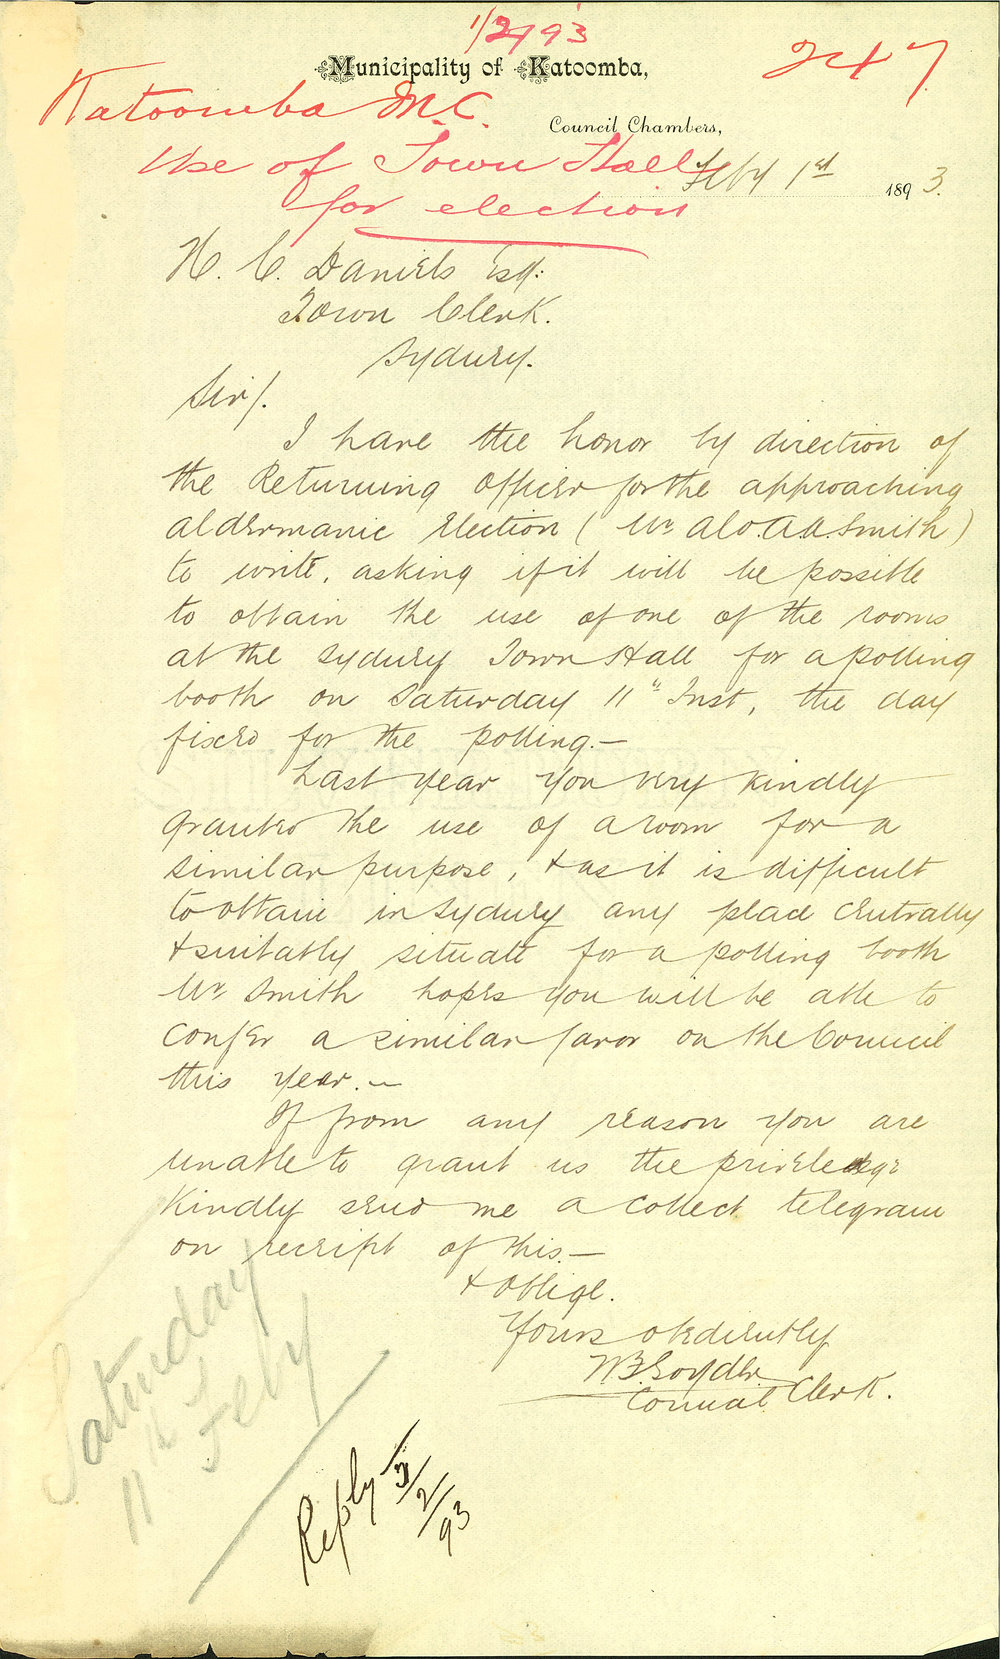 1/2/93
Municipality of Katoomba,
247
Katoomba M.C.
Council Chambers,
Use of Town Hall
for election
Feby 1st 1893.
H. C. Daniels Esq:
Town Clerk.
Sydney.
Sir/.
I have the honor by direction of
the Returning Officer for the approaching
aldermanic Election (Mr Ald. A.A. Smith)
to write, asking if it will be possible
to obtain the use of one of the rooms
at the Sydney Town Hall for a polling
booth on Saturday 11th Inst, the day
fixed for the polling.—
Last year you very kindly
granted the use of a room for a
similar purpose, & as it is difficult
to obtain in Sydney any place centrally
& suitably situate for a polling booth
Mr Smith hopes you will be able to
confer a similar favor on the Council
this year.—
If from any reason you are
unable to grant us the priveledge
Kindly send me a collect telegram
on receipt of this.—
& Oblige.
Yours obediently
Goyder
Council Clerk.
Saturday
11th Feby
Reply 3/2/93